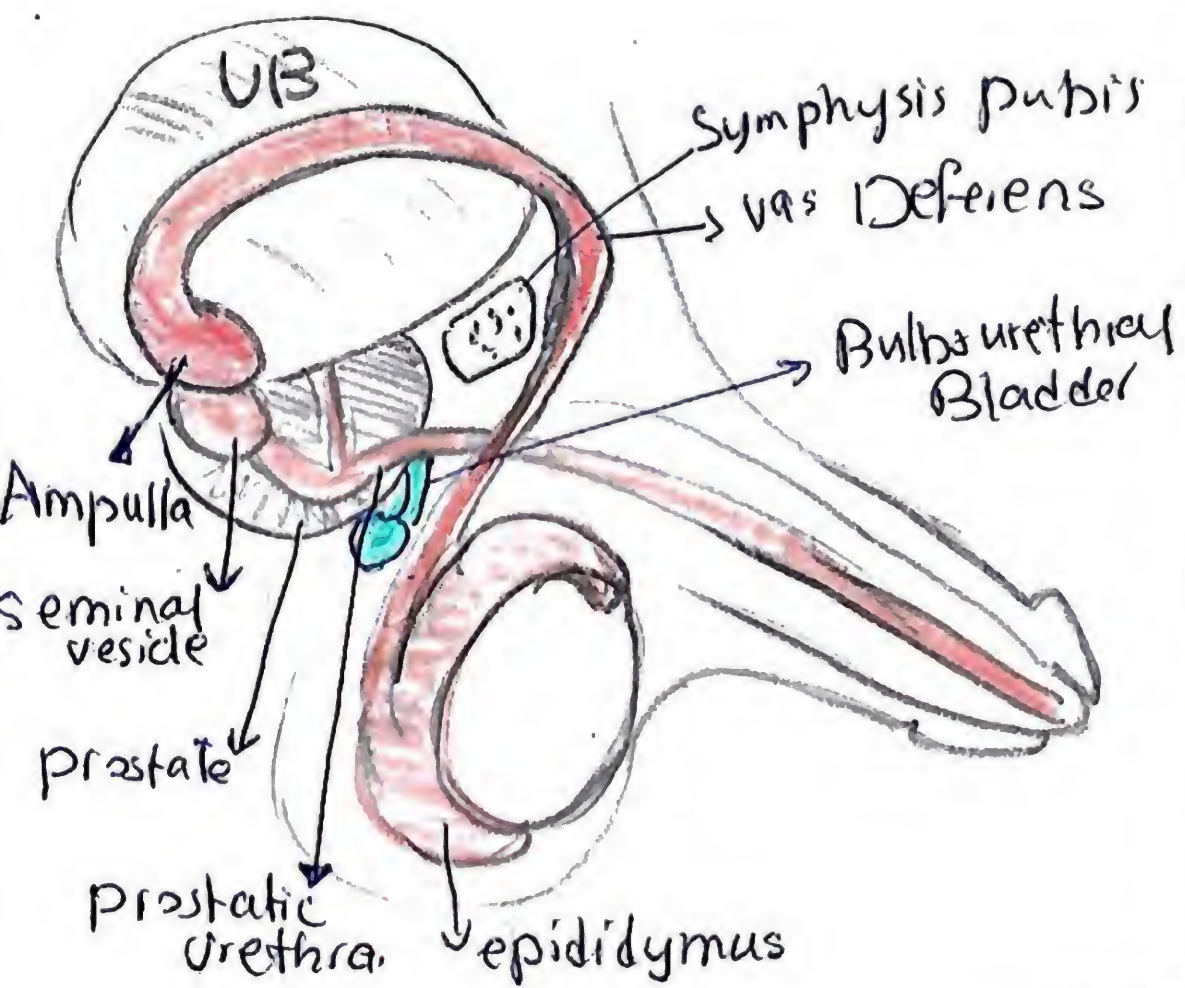 UB
Symphysis pubis
vas Deferens
Bulbourethral
Bladder
Ampulla
seminal
vesicle
prostate
prostatic
urethra.
epididymus